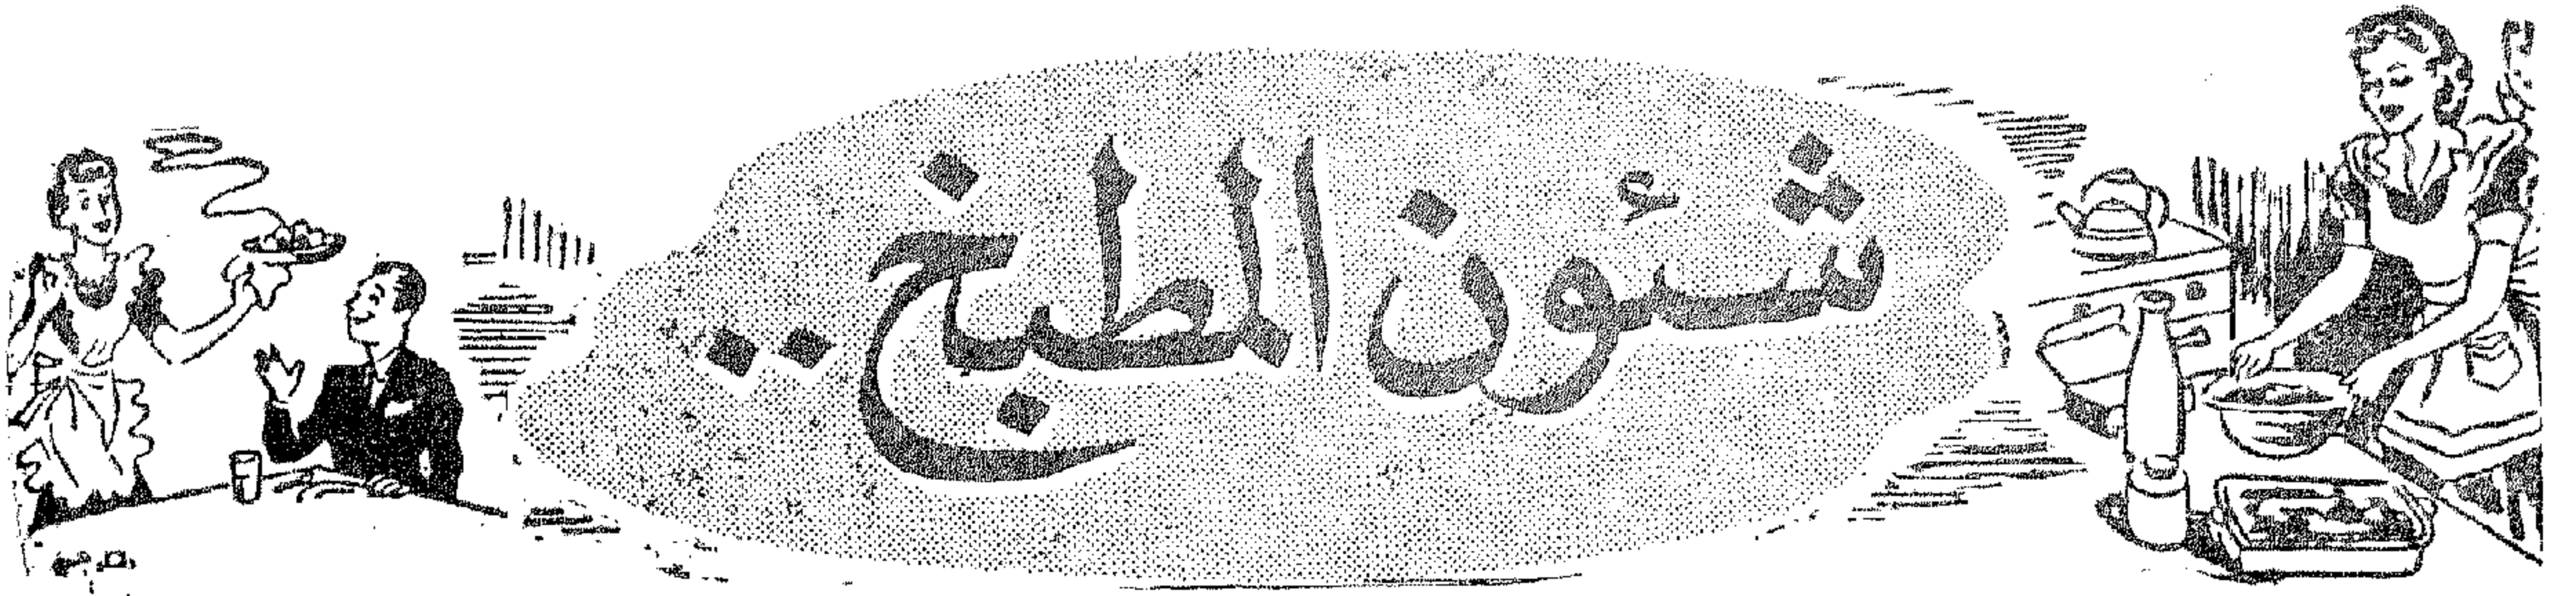 شئون المطبخ ..